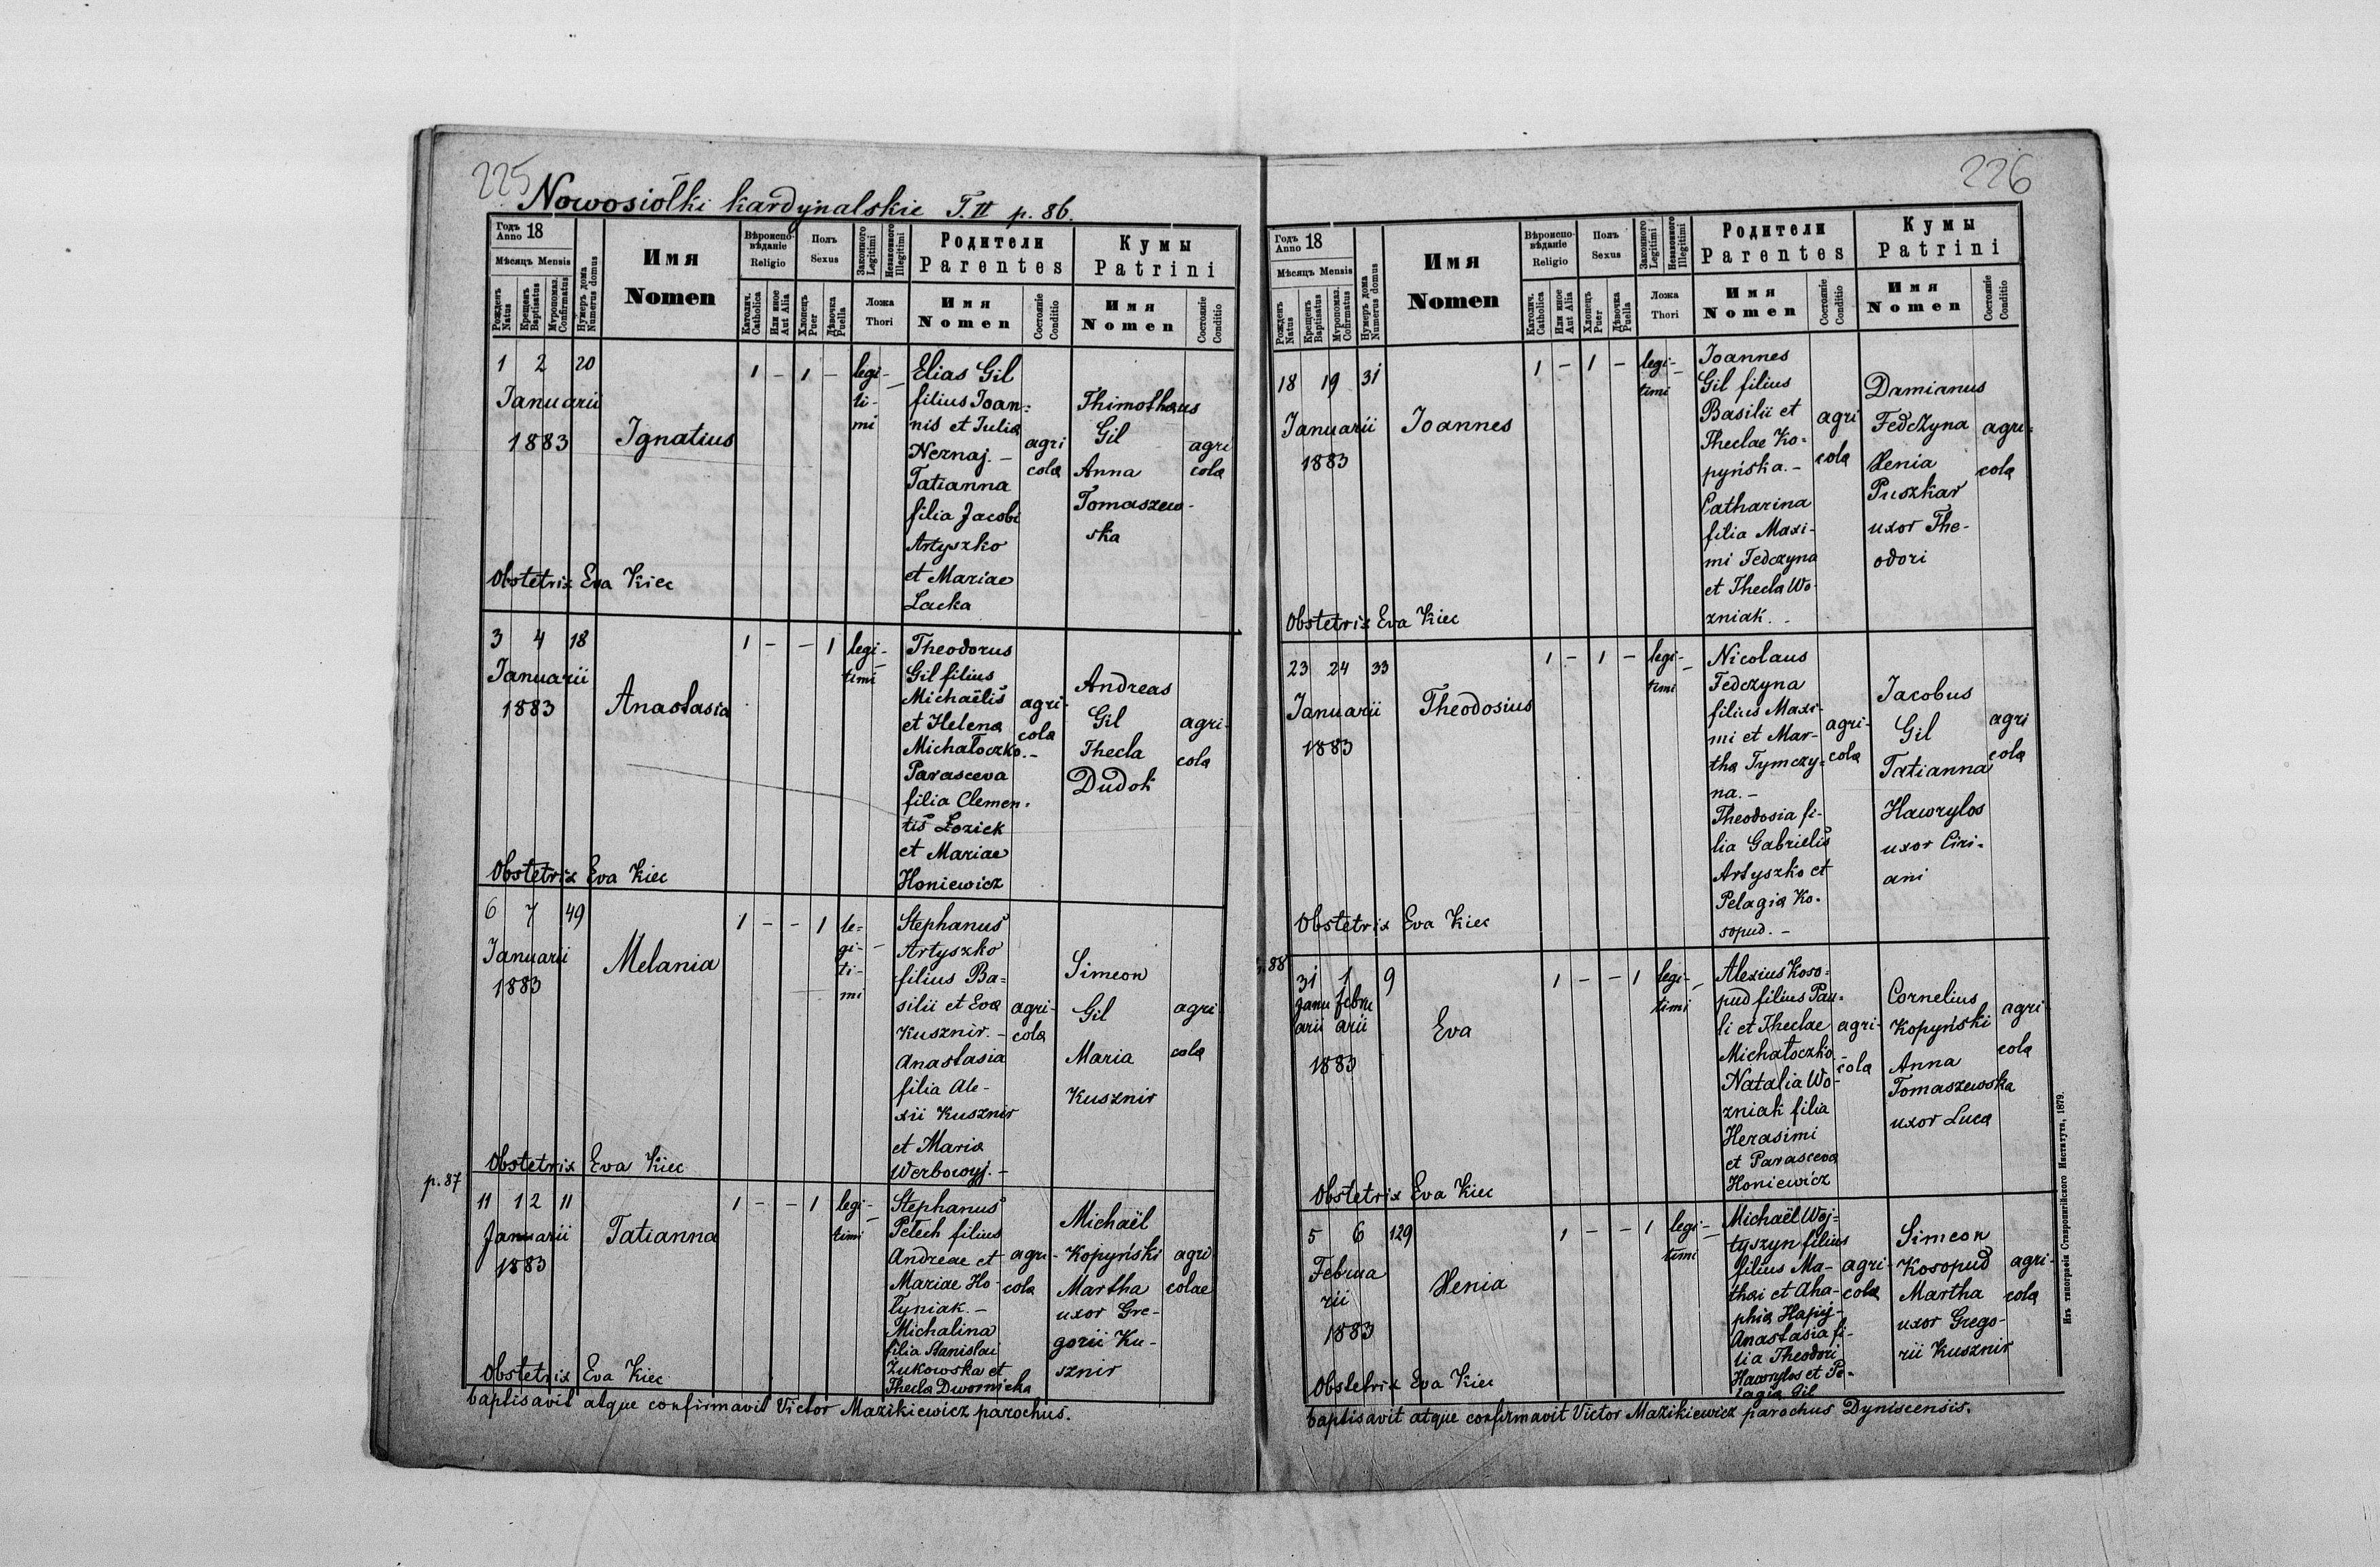 225
Nowosiółki kardynalskie T. II p. 86.
Годъ Anno 18
Мѣсяцъ Mensis
Рожденъ Natus
Крещенъ Baptisatus
Мѵропомаз. Confirmatus
Нумеръ дома Numerus domus
Имя Nomen
Вѣроиспо-вѣданіе Religio
Католич. Catholica
Или иное Aut Alia
Полъ Sexus
Хлопецъ Puer
Дѣвочка Puella
Законного Legitimi
Незаконного Illegitimi
Ложа Thori
Родители Parentes
Имя Nomen
Состояніе Conditio
Кумы Patrini
Имя Nomen
Состояніе Conditio
1 2 20
Januarii
1883
Ignatius
1 - 1 -
legi-
ti-
mi
Elias Gil
filius Joan=
nis et Julia
Neznaj. -
Tatianna
filia Jacobi
Artyszko
et Mariae
Lacka
agri
cola
Thimotheus
Gil
Anna
Tomaszew-
ska
agri
cola
Obstetrix Eva Kiec
3 4 18
Januarii
1883
Anastasia
1 - - 1
legi-
timi
Theodorus
Gil filius
Michaëlis
et Helena
Michałoczko.-
Parasceva
filia Clemen-
tis Łoziek
et Mariae
Honiewicz
agri-
cola
Andreas
Gil
Thecla
Dudok
agri-
cola
Obstetrix Eva Kiec
6 7 49
Januarii
1883
Melania
1 - - 1
le=
gi-
ti-
mi
Stephanus
Artyszko
filius Ba=
silii et Eva
Kusznir. -
Anastasia
filia Ale-
xii Kusznir
et Maria
Werbowyj. -
agri-
cola
Simeon
Gil
Maria
Kusznir
agri
cola
Obstetrix Eva Kiec
p. 87
11 12 11
Januarii
1883
Tatianna
1 - - 1
legi-
timi
Stephanus
Petech filius
Andreae et
Mariae Ho-
łyniak. -
Michalina
filia Stanislai
Żukowska et
Thecla Dwornicka
agri-
cola
Michaël
Kopyński
Martha
uxor Gre-
gorii Ku-
sznir
agri
colae
Obstetrix Eva Kiec
baptisavit atque confirmavit Victor Mazikiewicz parochus.
226
Годъ Anno 18
Мѣсяцъ Mensis
Рожденъ Natus
Крещенъ Baptisatus
Мѵропомаз. Cofirmatus
Нумеръ дома Numerus domus
Имя Nomen
Вѣроиспо-вѣданіе Religio
Католич. Catholica
Или иное Aut Alia
Полъ Sexus
Хлопецъ Puer
Дѣвочка Puella
Законного Legitimi
Незаконного Illegitimi
Ложа Thori
Родители Parentes
Имя Nomen
Состояніе Conditio
Кумы Patrini
Имя Nomen
Состояніе Conditio
18 19 31
Januarii
1883
Joannes
1 - 1 -
legi-
timi
Joannes
Gil filius
Basilii et
Theclae Ko-
pyńska. -
Catharina
filia Maxi-
mi Fedczyna
et Thecla Wo-
zniak. -
agri
cola
Damianus
Fedczyna
Xenia
Puszkar
uxor The-
odori
agri-
cola
Obstetrix Eva Kiec
23 24 33
Januarii
1883
Theodosius
1 - 1 -
legi-
timi
Nicolaus
Fedczyna
filius Maxi-
mi et Mar-
tha Tymczy-
na. -
Theodosia fi-
lia Gabrielis
Artyszko et
Pelagia Ko-
sopud. -
agri-
cola
Jacobus
Gil
Tatianna
Hawrylos
uxor Ciri-
ani
agri
cola
Obstetrix Eva Kiec
88
31 1 9
Janu febru
arii arii
1883
Eva
1 - - 1
legi-
timi
Alexius Koso=
pud filius Pau=
li et Theclae
Michałoczko. -
Natalia Wo-
zniak filia
Herasimi
et Parasceva
Honiewicz
agri-
cola
Cornelius
Kopyński
Anna
Tomaszewska
uxor Luca
agri-
cola
Obstetrix Eva Kiec
5 6 129
Februa
rii
1883
Xenia
1 - - 1
legi-
timi
Michaël Woj=
tyszyn filius
filius Ma-
thai et Aha-
phia Hapij-
Anastasia fi-
lia Theodori
Hawrylos et Pe-
lagia Gil
agri-
cola
Simeon
Kosopud
Martha
uxor Grego-
rii Kusznir
agri-
cola
Obstetrix Eva Kiec
baptisavit atque confirmavit Victor Mazikiewicz parochus Dyniscensis.
Изъ типографіи Ставропигійского Института, 1879.